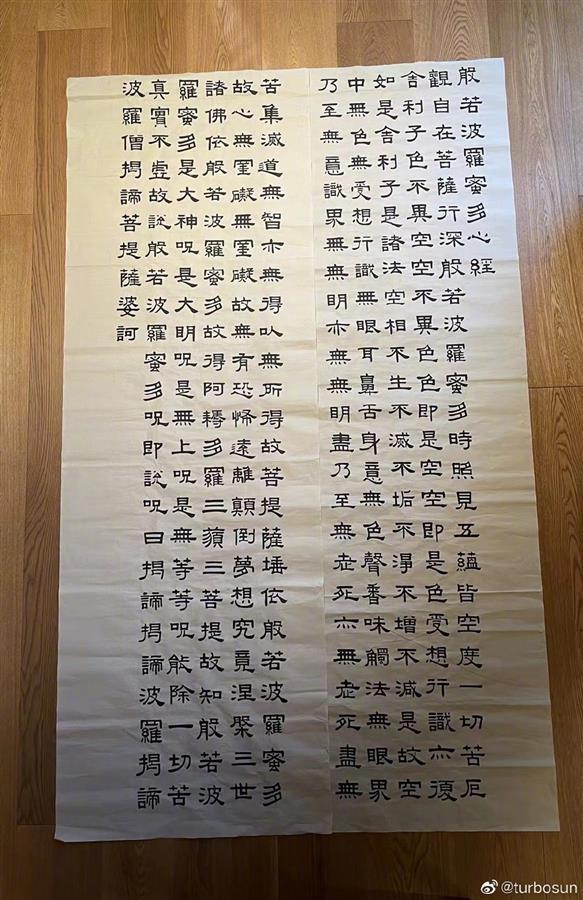 般若波羅蜜多心經
觀自在菩薩行深般若波羅蜜多時照見五蘊皆空度一切苦厄
舍利子色不異空空不異色色即是空空即是色受想行識亦復
如是舍利子是諸法空相不生不滅不垢不淨不增不減是故空
中無色無受想行識無眼耳鼻舌身意無色聲香味觸法無眼界
乃至無意識界無無明亦無無明盡乃至無老死亦無老死盡無
苦集滅道無智亦無得以無所得故菩提薩埵依般若波羅蜜多
故心無罣礙無罣礙故無有恐怖遠離顛倒夢想究竟涅槃三世
諸佛依般若波羅蜜多故得阿耨多羅三藐三菩提故知般若波
羅蜜多是大神呪是大明呪是無上呪是無等等呪能除一切苦
真實不虛故說般若波羅蜜多呪即說呪曰揭諦揭諦波羅揭諦
波羅僧揭諦菩提薩婆訶
@turbosun